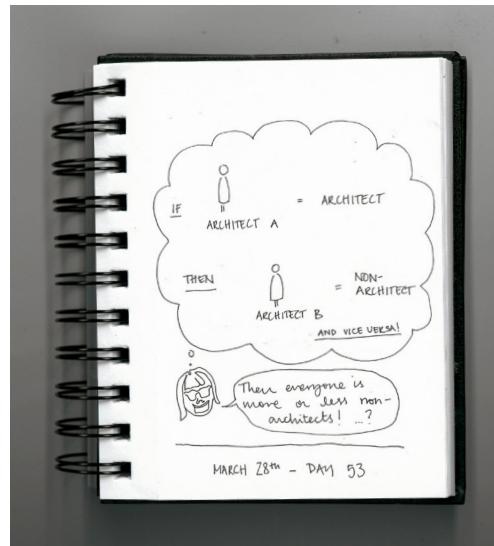 IF
= ARCHITECT
ARCHITECT A
THEN
= NON-
ARCHITECT
ARCHITECT B
AND VICE VERSA!
Then everyone is
more or less non-
architects! ...?
MARCH 28th - DAY 53